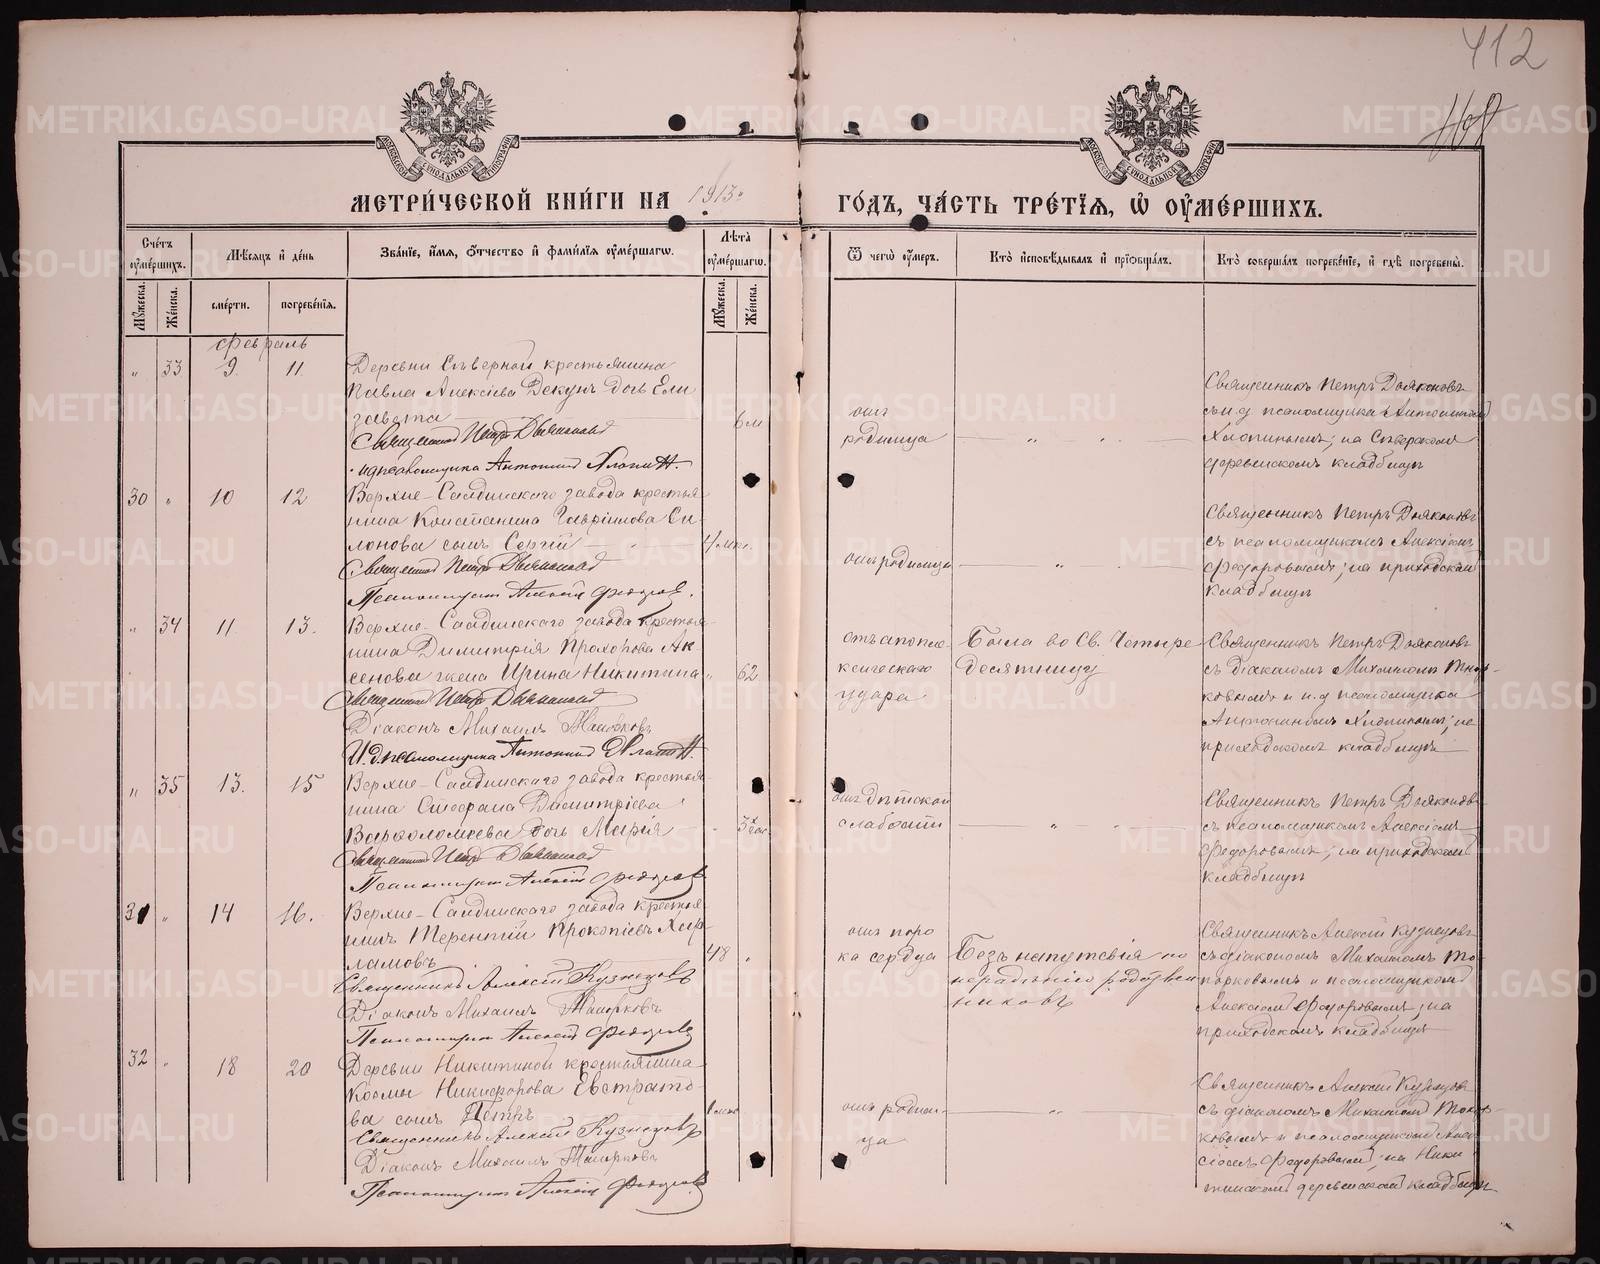 412
МЕТРИ́ЧЕСКОЙ КНИ́ГИ НА 1913 ГО́ДЪ, ЧА́СТЬ ТРЕ́ТIѦ, Ѡ ОУ҆МЕ́РШИХЪ.
Сче́тъ оу҆ме́ршихъ.
Мѣ́сѧцъ и҆ де́нь
Зва́нїе, и҆́мѧ, ѻ҆́тчество и҆ фами́лїѧ оу҆ме́ршагѡ.
Лѣ́та оу҆ме́ршагѡ.
Ѿ чегѡ̀ оу҆́меръ.
Кто̀ и҆сповѣ́дывалъ и҆ прїѡбща́лъ.
Кто̀ соверша́лъ погребе́нїе, и҆ гдѣ̀ погребены̀.
Мꙋ́жеска. Же́нска. сме́рти. погребе́нїѧ. Мꙋ́жеска. Же́нска.
февраль
" 33 9. 11
Деревни Сѣверной крестьянина
Павла Алексѣева Декунъ дочь Ели
завета
Священникъ Петръ Дьяконовъ
и.д псаломщика Антонинъ Хлопинъ.
6 м
отъ
родимца
"
Священникъ Петръ Дьяконовъ
съ и.д псаломщика Антониномъ
Хлопинымъ; на Сѣверскомъ
деревенскомъ кладбищѣ
30 " 10 12
Верхне-Салдинскаго завода крестья
нина Константина Гавріилова Си-
лонова сынъ Сергій
Священникъ Петръ Дьяконовъ
Псаломщикъ Алексѣй Федоровъ.
4 мѣс.
отъ родимца
"
Священникъ Петръ Дьяконовъ
съ псаломщикомъ Алексѣемъ
Федоровымъ; на приходскомъ
кладбищѣ
" 34 11 13.
Верхне-Салдинскаго завода крестья
нина Димитрія Прохорова Ак-
сенова жена Ирина Никитина
Священникъ Петръ Дьяконовъ
Діаконъ Михаилъ Топорковъ
И.д. псаломщика Антонинъ Хлопинъ.
" 62
отъ апопле-
ксическаго
удара
Была во Св. Четыре
десятницу
Священникъ Петръ Дьяконовъ
съ діакономъ Михаиломъ Топор-
ковымъ и и.д псаломщика
Антониномъ Хлопинымъ; на
приходскомъ кладбищѣ
" 35 13. 15
Верхне-Салдинскаго завода крестья
нина Стефана Димитріева
Варфоломеева дочь Марія
Священникъ Петръ Дьяконовъ
Псаломщикъ Алексѣй Федоровъ
отъ дѣтской
слабости
"
Священникъ Петръ Дьяконовъ
съ псаломщикомъ Алексѣемъ
Федоровымъ; на приходскомъ
кладбищѣ
31 " 14 16.
Верхне-Салдинскаго завода крестья
нинъ Терентій Прокопіевъ Хар
ламовъ
Священникъ Алексѣй Кузнецовъ
Діаконъ Михаилъ Топорковъ
Псаломщикъ Алексѣй Федоровъ
48 "
отъ поро
ка сердца
Безъ напутствія по
нерадѣнію родствен
никовъ
Священникъ Алексѣй Кузнецовъ
съ діакономъ Михаиломъ То-
порковымъ и псаломщикомъ
Алексѣемъ Федоровымъ; на
приходскомъ кладбищѣ
32 " 18 20
Деревни Никитиной крестьянина
Космы Никифорова Евстрато-
ва сынъ Петръ
Священникъ Алексѣй Кузнецовъ
Діаконъ Михаилъ Топорковъ
Псаломщикъ Алексѣй Федоровъ
1 мѣс
отъ родим-
ца
"
Священникъ Алексѣй Кузнецовъ
съ діакономъ Михаиломъ Топор-
ковымъ и псаломщикомъ Алек-
сѣемъ Федоровымъ; на Ники
тинскомъ деревенскомъ кладбищѣ
METRIKI.GASO-URAL.RU